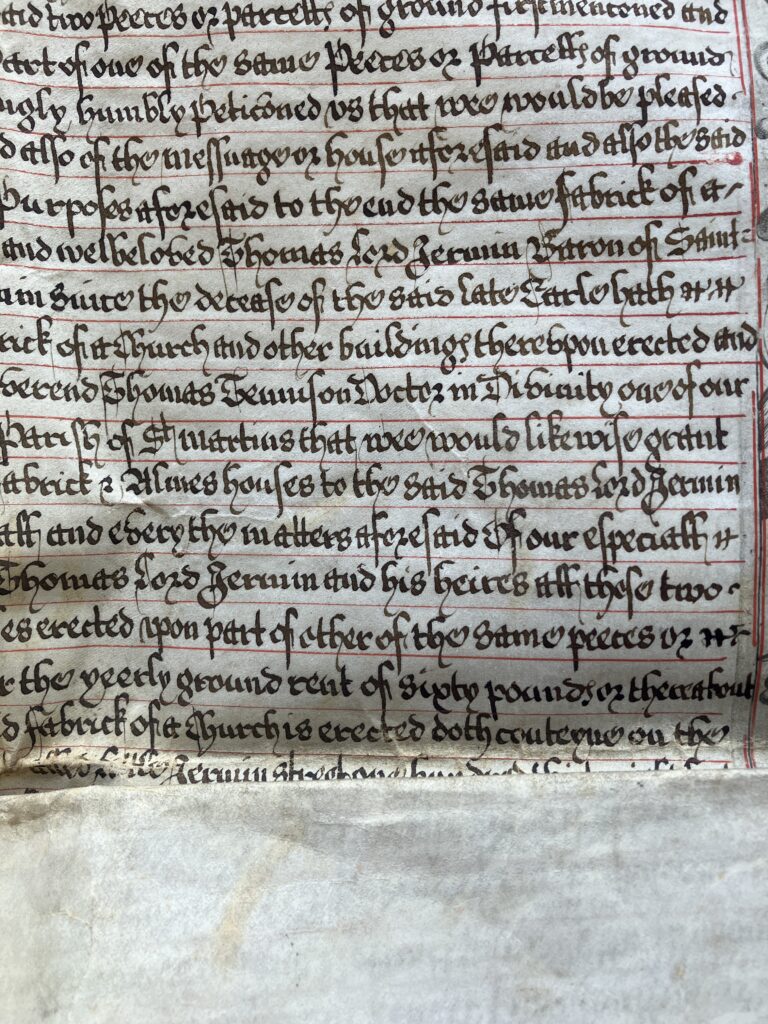 aid two peeces or parcells of ground first menconed and
art of one of the same Peeces or Parcells of ground
ngly humbly peticoned us that wee would be pleased
d also of the messuage or house aforesaid and also the said
Purposes aforesaid to the end the same fabrick of a
and welbeloved Thomas Lord Jermin Baron of Saint
in since the decease of the said late Earle hath
rick of a Church and other buildings thereupon erected and
verend Thomas Tennison Doctor in Divinity one of our
Parish of St martins that wee would likewise grant
abrick & Almes houses to the said Thomas Lord Jermin
all and every the matters aforesaid Of our especiall
Thomas Lord Jermin and his heires all those two
es erected upon part of other of the same peeces or
r the yeerly ground rent of sixty pounds or thereabout
d fabrick of a Church is erected doth conteyne on the
Jermin street one hundred